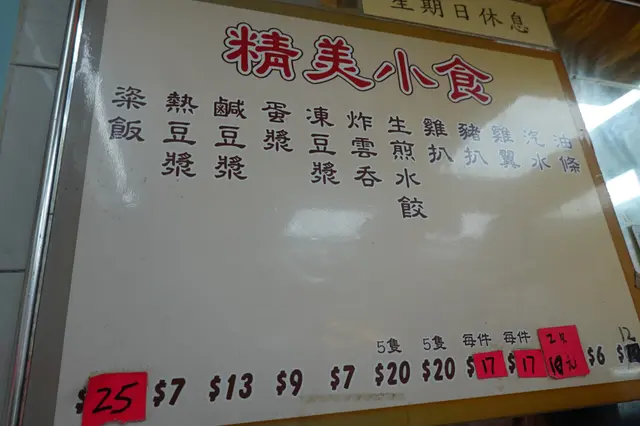 星期日休息
精美小食
粢飯
熱豆漿
鹹豆漿
蛋漿
凍豆漿
炸雲吞
生煎水餃
雞扒
豬扒
雞翼
汽水
油條
5隻
5隻
每件
每件
2隻
12
25
$7
$13
$9
$7
$20
$20
$17
$17
10元
$6
$